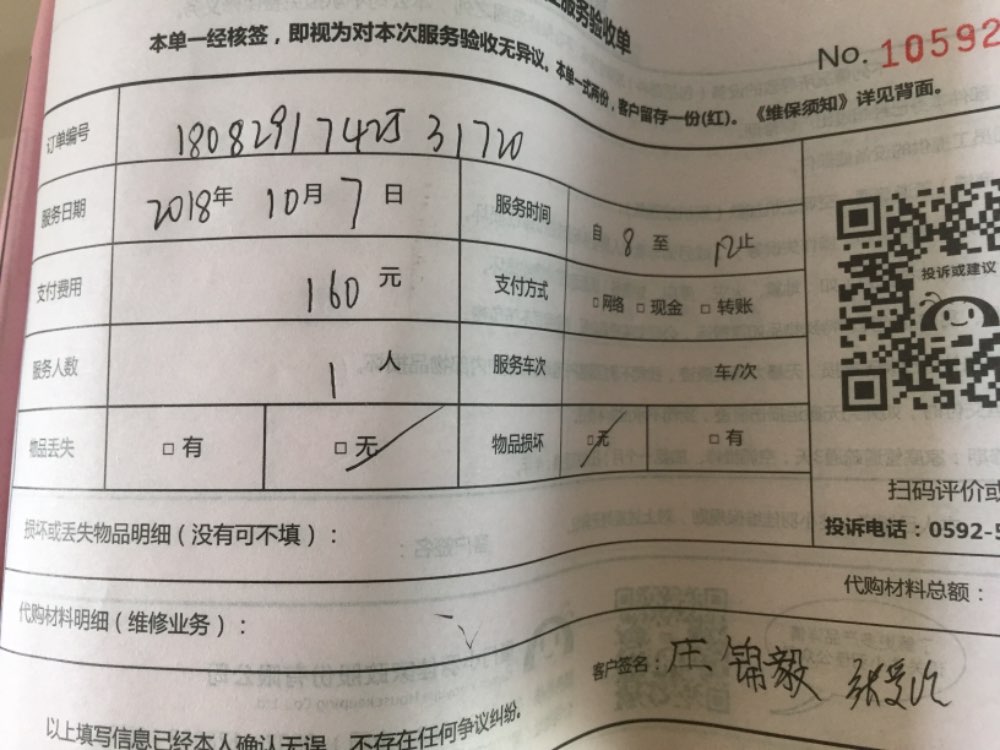 服务验收单
本单一经核签，即视为对本次服务验收无异议。本单一式两份，客户留存一份(红)。《维保须知》详见背面。
No. 10592
订单编号
服务日期 2018年 10月 7日 服务时间 自 8 至 12止
支付费用 160 元 支付方式 □网络 □现金 □转账
服务人数 1 人 服务车次 车/次
物品丢失 □有 □无 物品损坏 □无 □有
投诉或建议
扫码评价或
损坏或丢失物品明细（没有可不填）：
投诉电话：0592-5
代购材料总额：
代购材料明细（维修业务）：
客户签名：庄锦毅
以上填写信息已经本人确认无误，不存在任何争议纠纷。